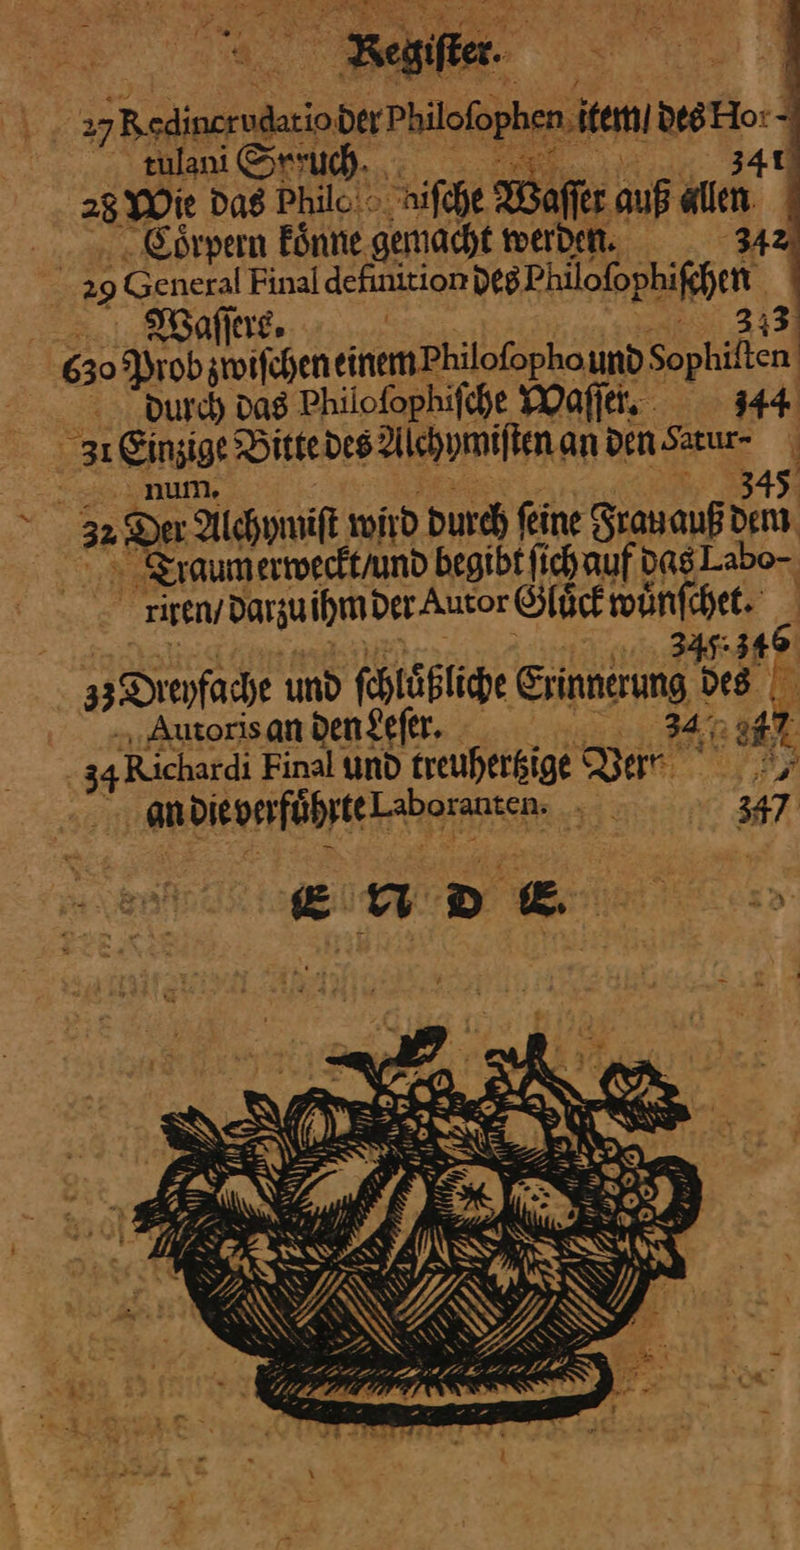 Regiſter.
27 Redincrudatio der Philoſophen item/ des Hor-
tulani Spruch. 341
28 Wie das Philoſophiſche Waſſer auß allen
Coͤrpern koͤnne gemacht werden. 342
29 General Final definition des Philoſophiſchen
Waſſers. 343
630 Prob zwiſchen einem Philoſopho und Sophiſten
durch das Philoſophiſche Waſſer. 344
31 Einzige Bitte des Alchymiſten an den Satur-
num. 345
32 Der Alchymiſt wird durch ſeine Frau auß dem
Traum erweckt/und begibt ſich auf das Labo-
riren/ darzu ihm der Autor Gluͤck wuͤnſchet.
345. 346
33 Dreyfache und ſchluͤßliche Erinnerung des
Autoris an den Leſer. 347
34 Richardi Final und treuhertzige
an die verfuͤhrte Laboranten. 347
E N D E.